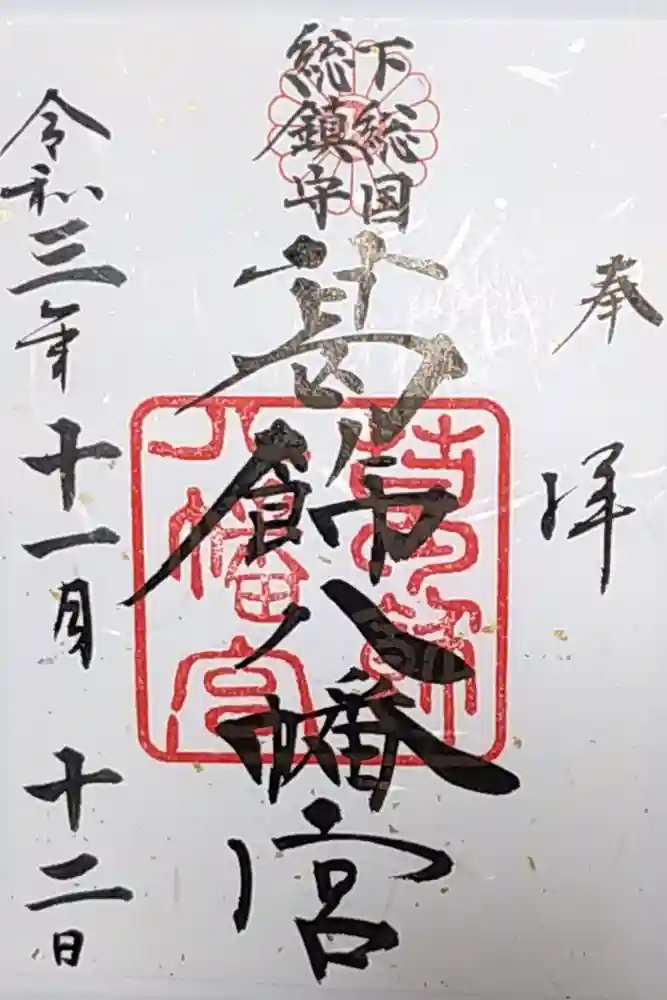 奉拝
下総国
総鎮守
葛飾八幡宮
葛飾
八幡宮
令和三年十一月十二日